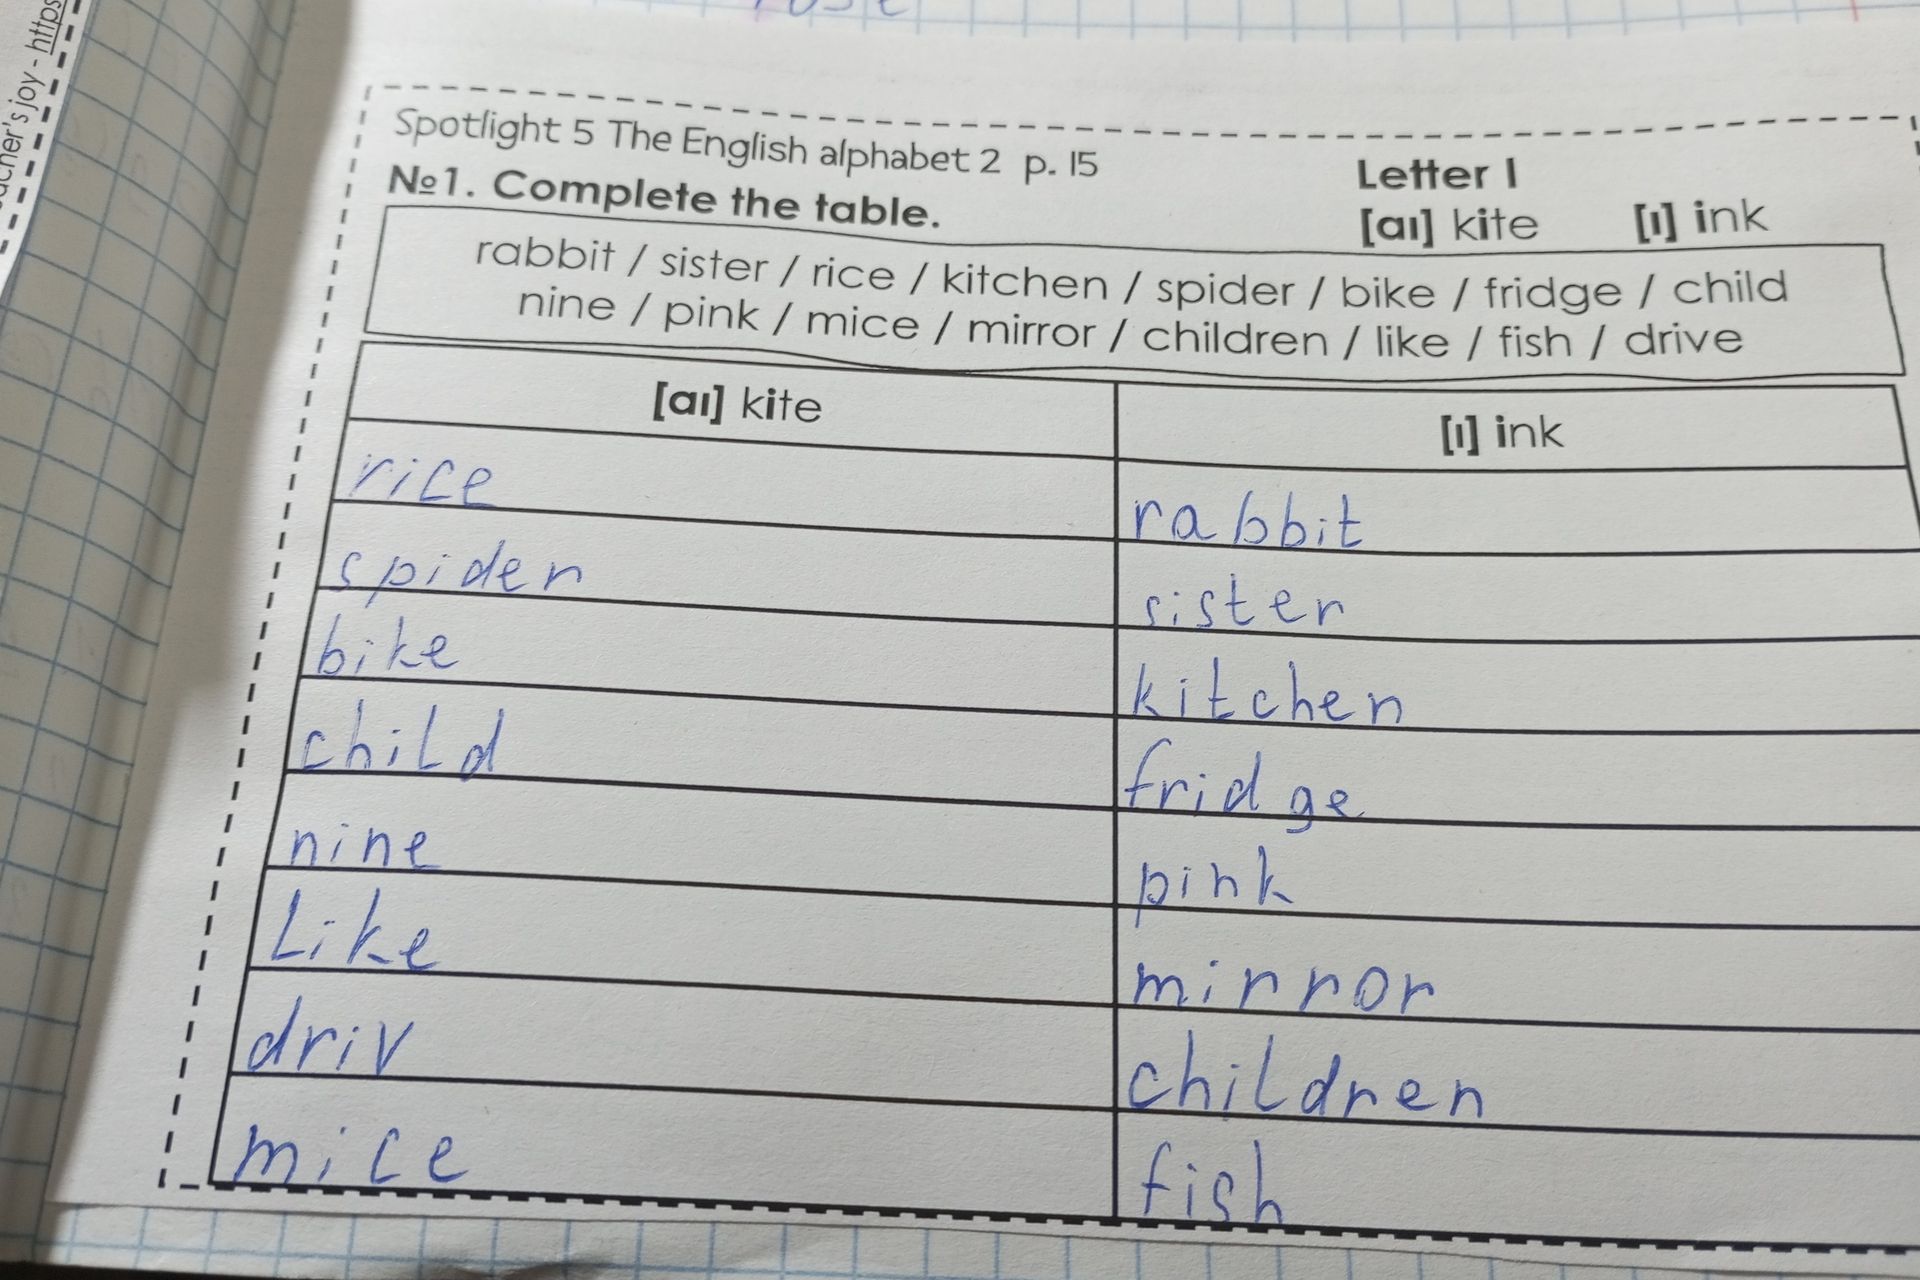 acher's joy - https
Spotlight 5 The English alphabet 2 p. 15
Letter I
№1. Complete the table.
[aı] kite [ı] ink
rabbit / sister / rice / kitchen / spider / bike / fridge / child
nine / pink / mice / mirror / children / like / fish / drive
[aı] kite [ı] ink
rice rabbit
spider sister
bike kitchen
child fridge
nine pink
Like mirror
driv children
mice fish